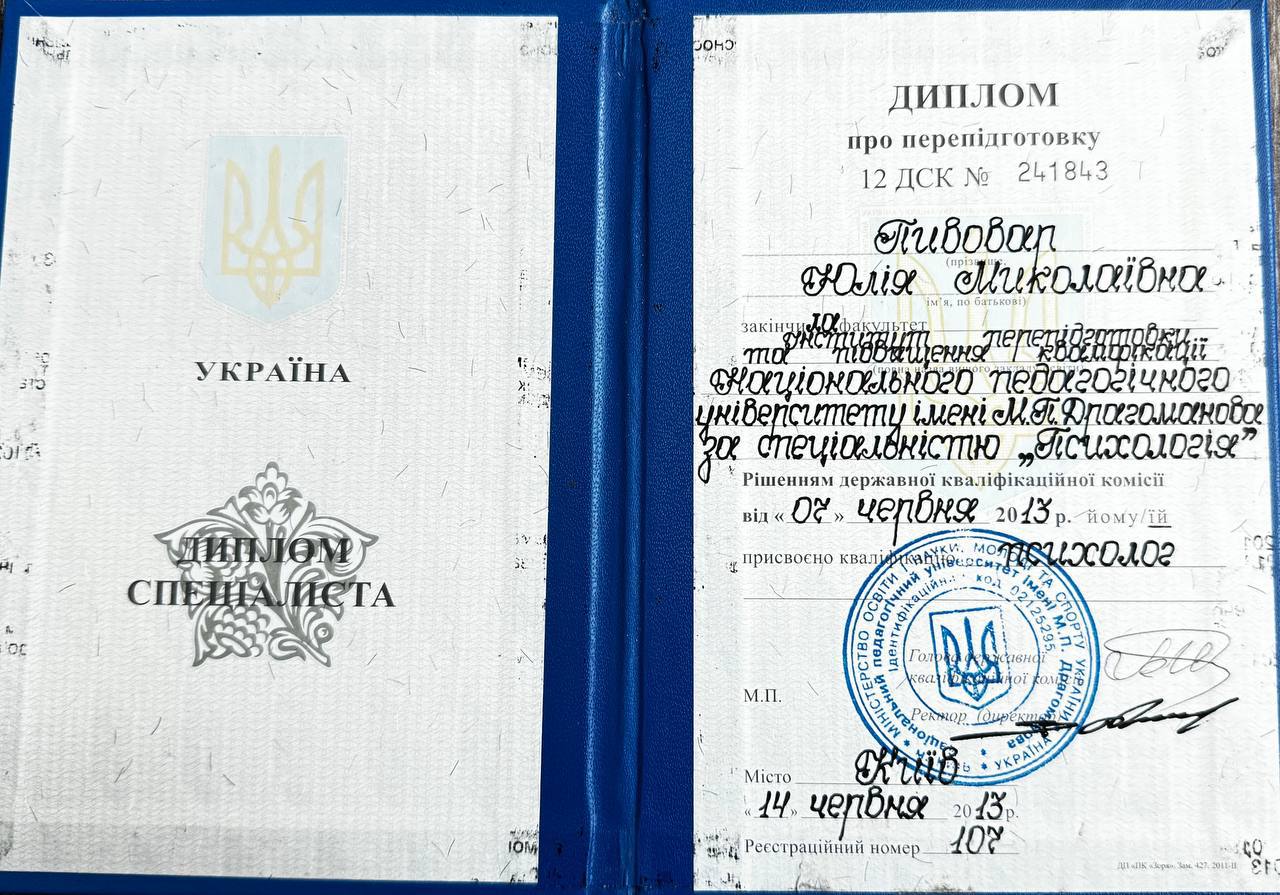 УКРАЇНА
ДИПЛОМ
СПЕЦІАЛІСТА
ДИПЛОМ
про перепідготовку
12 ДСК № 241843
Пивовар
(прізвище,
Юлія Миколаївна
ім'я, по батькові)
закінчила факультет
інститут перепідготовки
та підвищення кваліфікації
(повна назва вищого закладу освіти)
Національного педагогічного
університету імені М.П.Драгоманова
за спеціальністю „Психологія”
Рішенням державної кваліфікаційної комісії
від « 07 » червня 2013 р. йому/їй
присвоєно кваліфікацію психолог
МІНІСТЕРСТВО ОСВІТИ І НАУКИ, МОЛОДІ ТА СПОРТУ УКРАЇНИ
Національний педагогічний університет імені М.П. Драгоманова
Ідентифікаційний код 02125295
УКРАЇНА
Голова державної
кваліфікаційної комісії
М.П.
Ректор (директор)
Місто Київ
« 14 » червня 2013 р.
Реєстраційний номер 107
ДП «ПК «Зоря». Зам. 427. 2011-ІІ